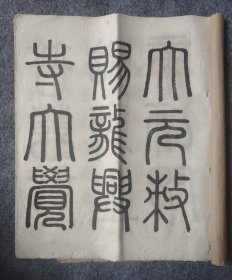 大元敕
賜龍興
寺大覺